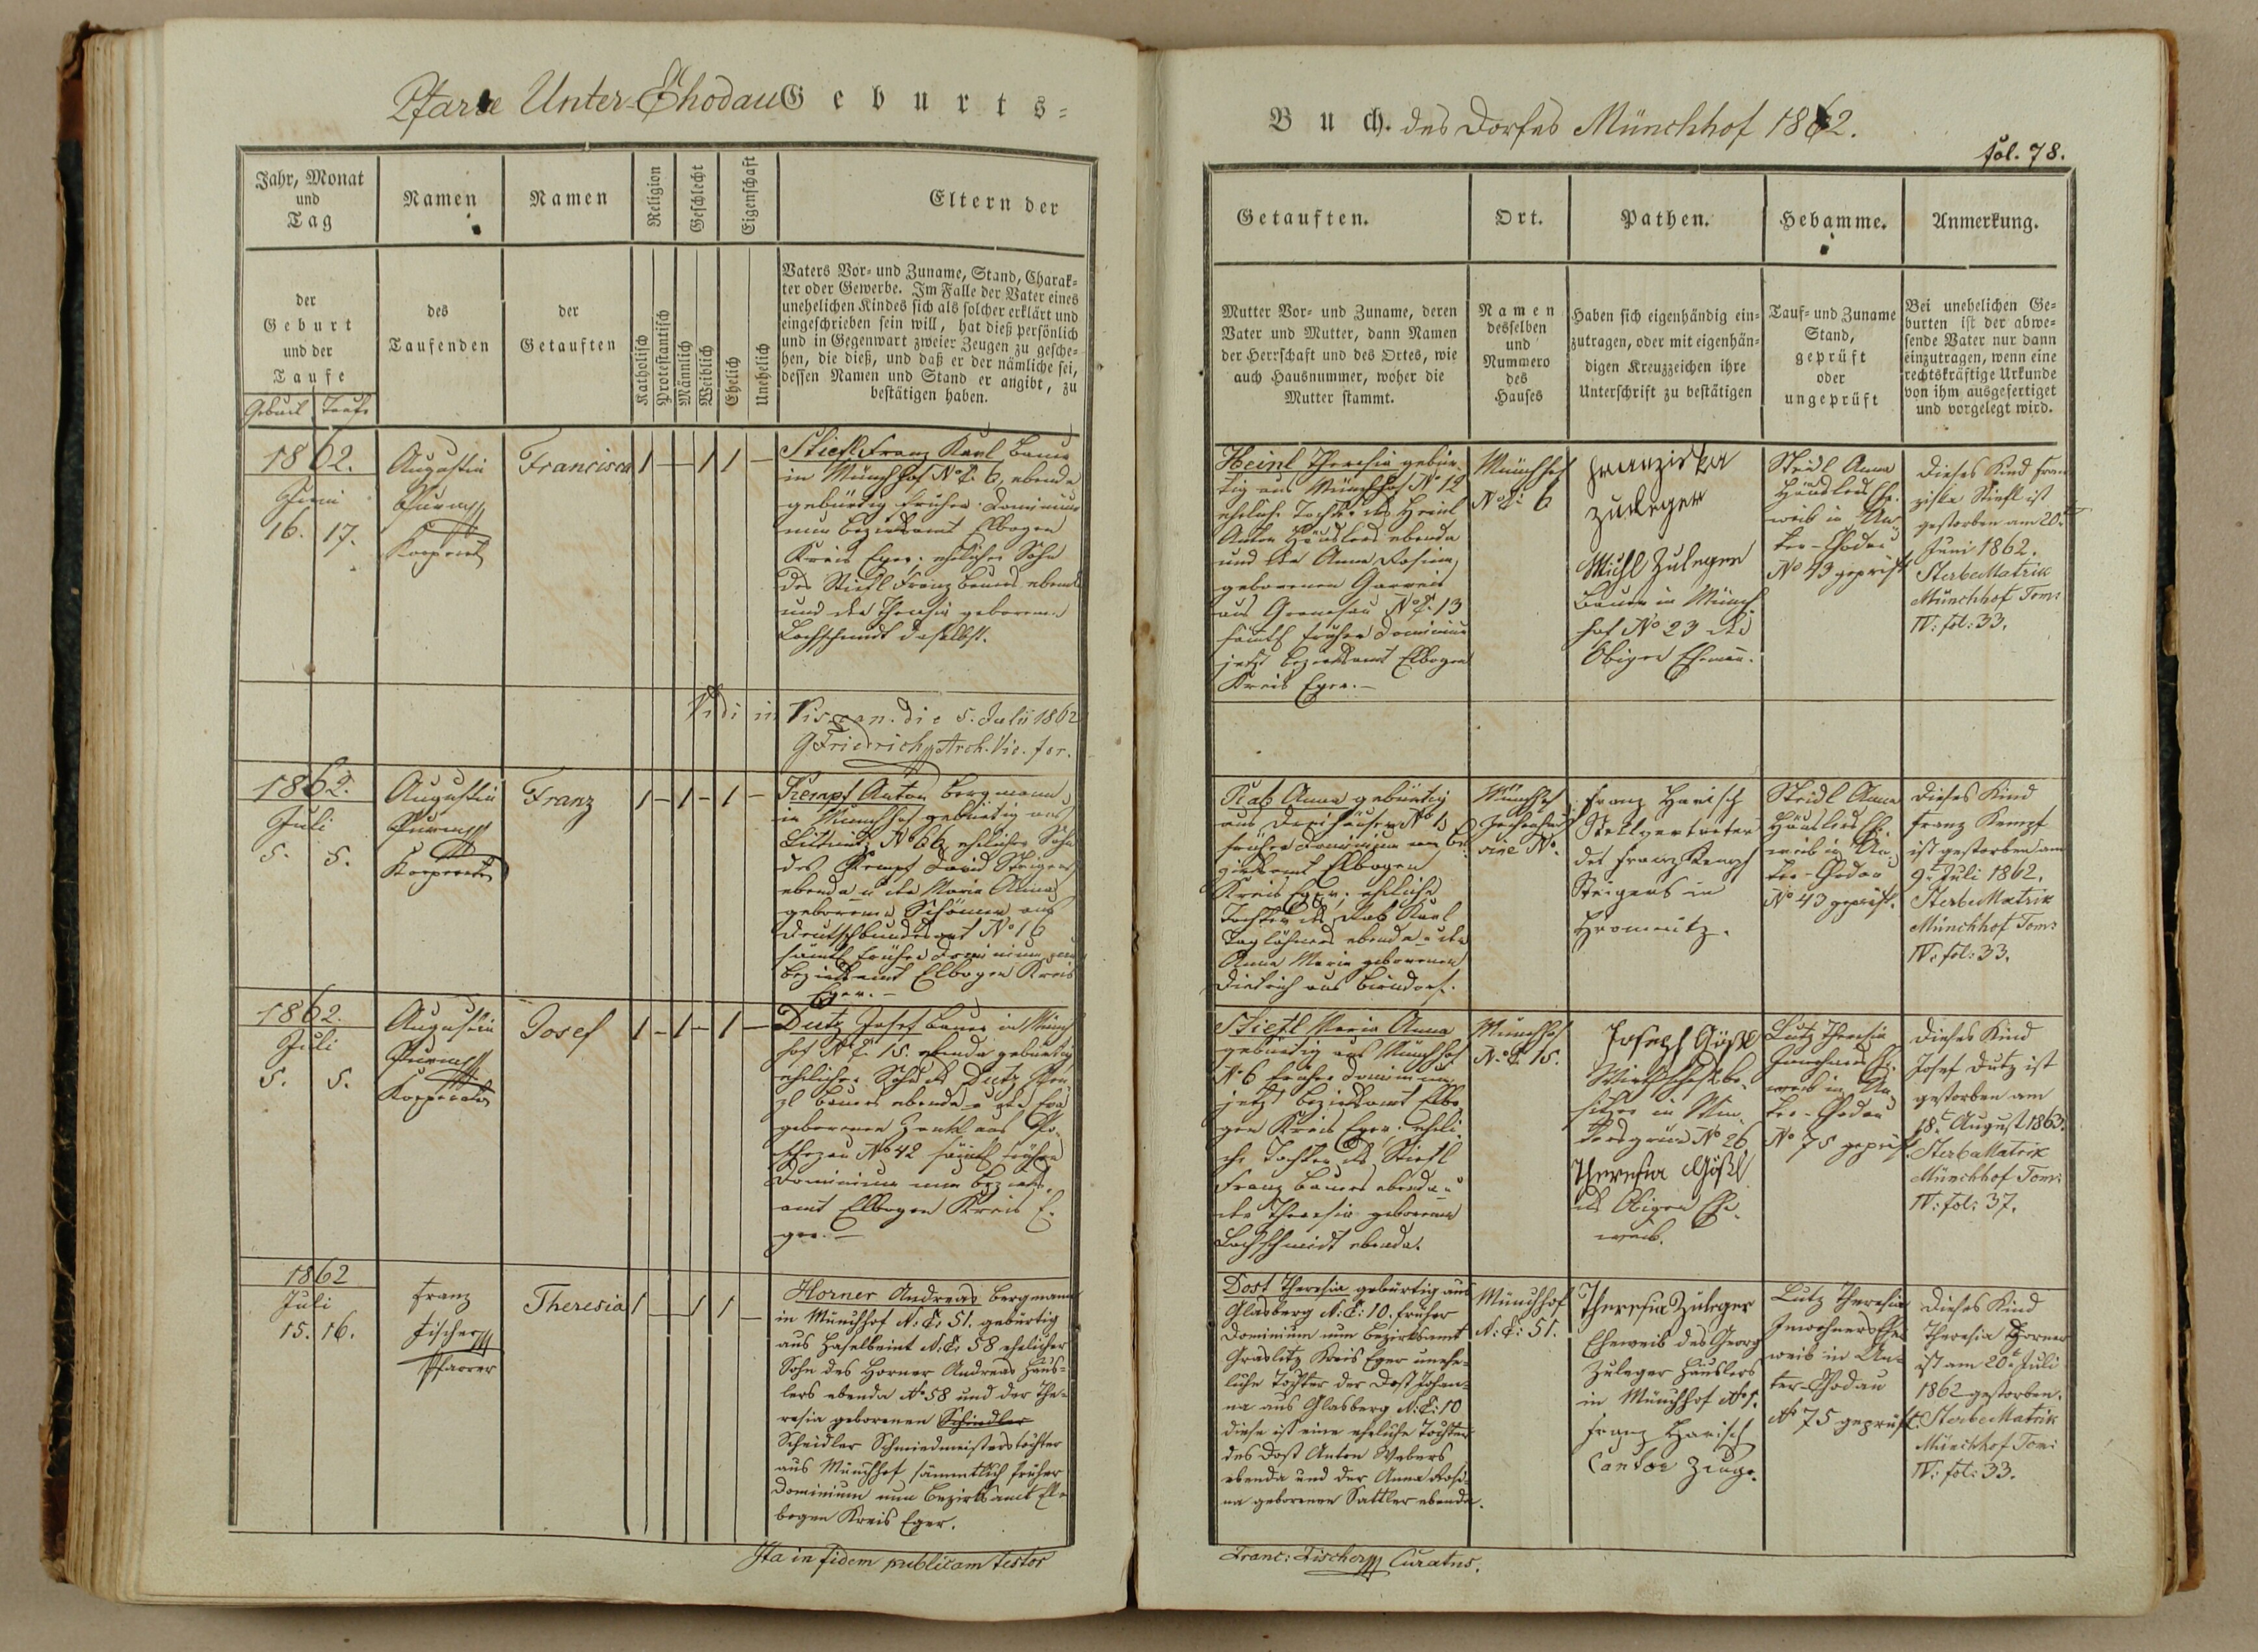 Pfarre Unter-Chodau Geburts-
Jahr, Monat
und
Tag
Namen
Namen
Religion
Geschlecht
Eigenschaft
Eltern der
der
Geburt
und der
Taufe
Geburt Taufe
des
Taufenden
der
Getauften
Katholisch
Protestantisch
Männlich
Weiblich
Ehelich
Unehelich
Vaters Vor- und Zuname, Stand, Charak-
ter oder Gewerbe. Im Falle der Vater eines
unehelichen Kindes sich als solcher erklärt und
eingeschrieben sein will, hat dieß persönlich
und in Gegenwart zweier Zeugen zu gesche-
hen, die dieß, und daß er der nämliche sei,
dessen Namen und Stand er angibt, zu
bestätigen haben.
1862.
Juni
16. 17.
Augustin
Francisca
1 — 1 1 —
Stiefl Franz Karl Bauer
in Münchhof N. C. 6, ebenda
gebürtig früher Dominium
nun Bezirksamt Elbogen
Kreis Eger; ehelicher Sohn
des Stiefl Franz Bauers ebenda
und der Theresia geborenen
Lochschmidt daselbst.
Vidi in Vis. can. die 5. Julii 1862
Friedrich Arch. Vic. for.
1862.
Juli
5. 5.
Augustin
Franz
1 — 1 — 1 —
Kempf Anton Bergmann
in Münchhof gebürtig aus
N. 66 ehelicher Sohn
des Kempf David Steigers
ebenda u der Maria Anna
geborenen
N. 16
früher Dominium nun
Bezirksamt Elbogen Kreis
Eger. —
1862.
Juli
5. 5.
Augustin
Josef
1 — 1 — 1 —
Dutz Josef Bauer in Münch
hof N. C. 15. ebenda gebürtig
ehelicher Sohn des Dutz
Bauers ebenda u der
geborenen
N. 42 früher
Dominium nun Bezirks-
amt Elbogen Kreis E-
ger. —
1862
Juli
15. 16.
Franz
Fischer
Pfarrer
Theresia
1 — 1 1 —
Horner Andreas Bergmann
in Münchhof N. C. 51. gebürtig
aus Haselbrint N. C. 58 ehelicher
Sohn des Horner Andreas Häus-
lers ebenda N. 58 und der The-
resia geborenen Schindler
Scheidler Schmiedmeisterstochter
aus Münchhof sämmtlich früher
Dominium nun Bezirksamt El-
bogen Kreis Eger.
Ita in fidem publicam testor
Buch. des Dorfes Münchhof 1862.
fol. 78.
Getauften.
Ort.
Pathen.
Hebamme.
Anmerkung.
Mutter Vor- und Zuname, deren
Vater und Mutter, dann Namen
der Herrschaft und des Ortes, wie
auch Hausnummer, woher die
Mutter stammt.
Namen
desselben
und
Nummero
des
Hauses
Haben sich eigenhändig ein-
zutragen, oder mit eigenhän-
digen Kreuzzeichen ihre
Unterschrift zu bestätigen
Tauf- und Zuname
Stand,
geprüft
oder
ungeprüft
Bei unehelichen Ge-
burten ist der abwe-
sende Vater nur dann
einzutragen, wenn eine
rechtskräftige Urkunde
von ihm ausgefertiget
und vorgelegt wird.
Heinl Theresia gebür-
tig aus Münchhof N. 12
eheliche Tochter des Heinl
Anton Häuslers ebenda
und der Anna Rosina
geborenen
aus Granesau N. C. 13
früher Dominium
jetzt Bezirksamt Elbogen
Kreis Eger. —
Münchhof
N. C. 6
Franziska
Zuleger
Michl Zuleger
Bauer in Münch
hof N. 23 des
Obigen Ehemann.
Steidl Anna
Häuslers Ehe-
weib in Un-
ter-Chodau
N. 43 geprüft
Dieses Kind Fran
ziska Stiefl ist
gestorben am 20t.
Juni 1862.
Sterbe Matrik
Münchhof Tom:
IV: fol: 33.
Rab Anna gebürtig
aus Dreihäuser N.
früher Dominium nun Be-
zirksamt Elbogen
Kreis Eger; eheliche
Tochter des Rab Karl
Taglöhners ebenda u der
Anna Maria geborenen
Dietrich aus Birndorf.
Münchhof
sine N.
Franz Harisch
Stellvertreter
des Franz Kempf
Steigers in
Steidl Anna
Häuslers Ehe-
weib in Un-
ter-Chodau
N. 43 geprüft.
Dieses Kind
Franz Kempf
ist gestorben am
9. Juli 1862.
Sterbe Matrik
Münchhof Tom:
IV: fol: 33.
Stiefl Maria Anna
gebürtig aus Münchhof
N. 6 früher Dominium
jetzt Bezirksamt Elbo
gen Kreis Eger; eheli
che Tochter des Stiefl
Franz Bauers ebenda u
der Theresia geborenen
Lochschmidt ebenda.
Münchhof
N. C. 15.
Joseph Gößl
Wirthschaftsbe-
sitzer in
N. 26
Theresia Gößl
des Obigen Ehe-
weib.
Lutz Theresia
Inwohners Ehe-
weib in Un-
ter-Chodau
N. 75 geprüft.
Dieses Kind
Josef Dutz ist
gestorben am
18. August 1863.
Sterbe Matrik
Münchhof Tom:
IV: fol: 37.
Dost Theresia gebürtig aus
Glasberg N. C: 10. früher
Dominium nun Bezirksamt
Graslitz Kreis Eger unehe-
liche Tochter der Dost Johan-
na aus Glasberg N: C: 10
diese ist eine eheliche Tochter
des Dost Anton Webers
ebenda und der Anna Rosi-
na geborenen Sattler ebenda.
Münchhof
N: C: 51.
Theresia Zuleger
Eheweib des Georg
Zuleger Häuslers
in Münchhof N. 1.
Franz Harisch
Cantor Zeuge.
Lutz Theresia
Inwohners Ehe-
weib in Un-
ter-Chodau
N. 75 geprüft
Dieses Kind
Theresia Horner
ist am 20t. Juli
1862 gestorben.
Sterbe Matrik
Münchhof Tom:
IV: fol: 33.
Franc: Fischer Curatus.